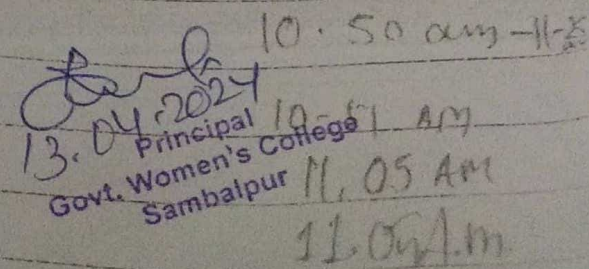 10.50 am -11-
13.04.2024
10-51 AM
Principal
Govt. Women's College
Sambalpur
11.05 AM
11.05 A.m